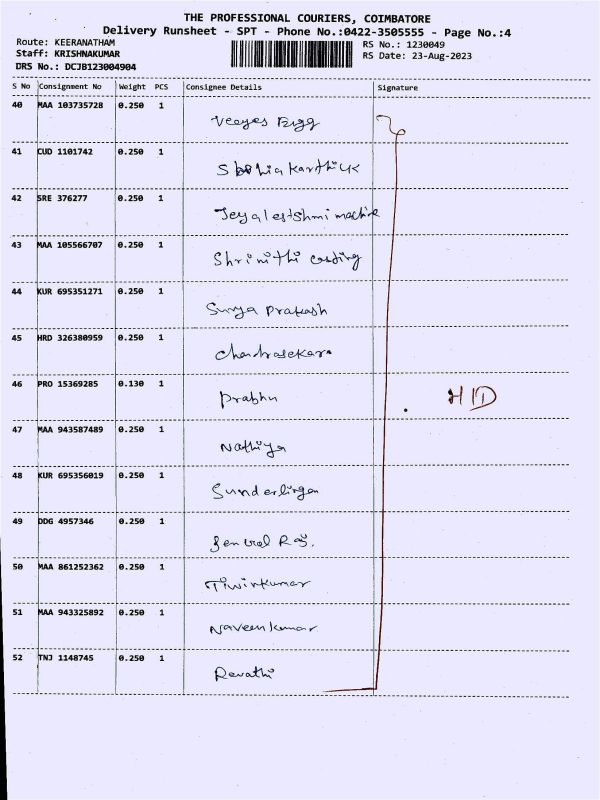 THE PROFESSIONAL COURIERS, COIMBATORE
Delivery Runsheet - SPT - Phone No.:0422-3505555 - Page No.:4
Route: KEERANATHAM RS No.: 1230049
Staff: KRISHNAKUMAR RS Date: 23-Aug-2023
DRS No.: DCJB123004904
S No Consignment No Weight PCS Consignee Details Signature
40 MAA 103735728 0.250 1 Veeyes Engg
41 CUD 1101742 0.250 1 Karthick
42 SRE 376277 0.250 1 machine
43 MAA 105566707 0.250 1 Shrinithi casting
44 KUR 695351271 0.250 1 Surya Prakash
45 HRD 326380959 0.250 1 Chandrasekara
46 PRO 15369285 0.130 1 Prabhu HID
47 MAA 943587489 0.250 1 Nathiya
48 KUR 695356019 0.250 1
49 DDG 4957346 0.250 1 Raj.
50 MAA 861252362 0.250 1
51 MAA 943325892 0.250 1 Naveenkumar
52 TNJ 1148745 0.250 1 Revathi